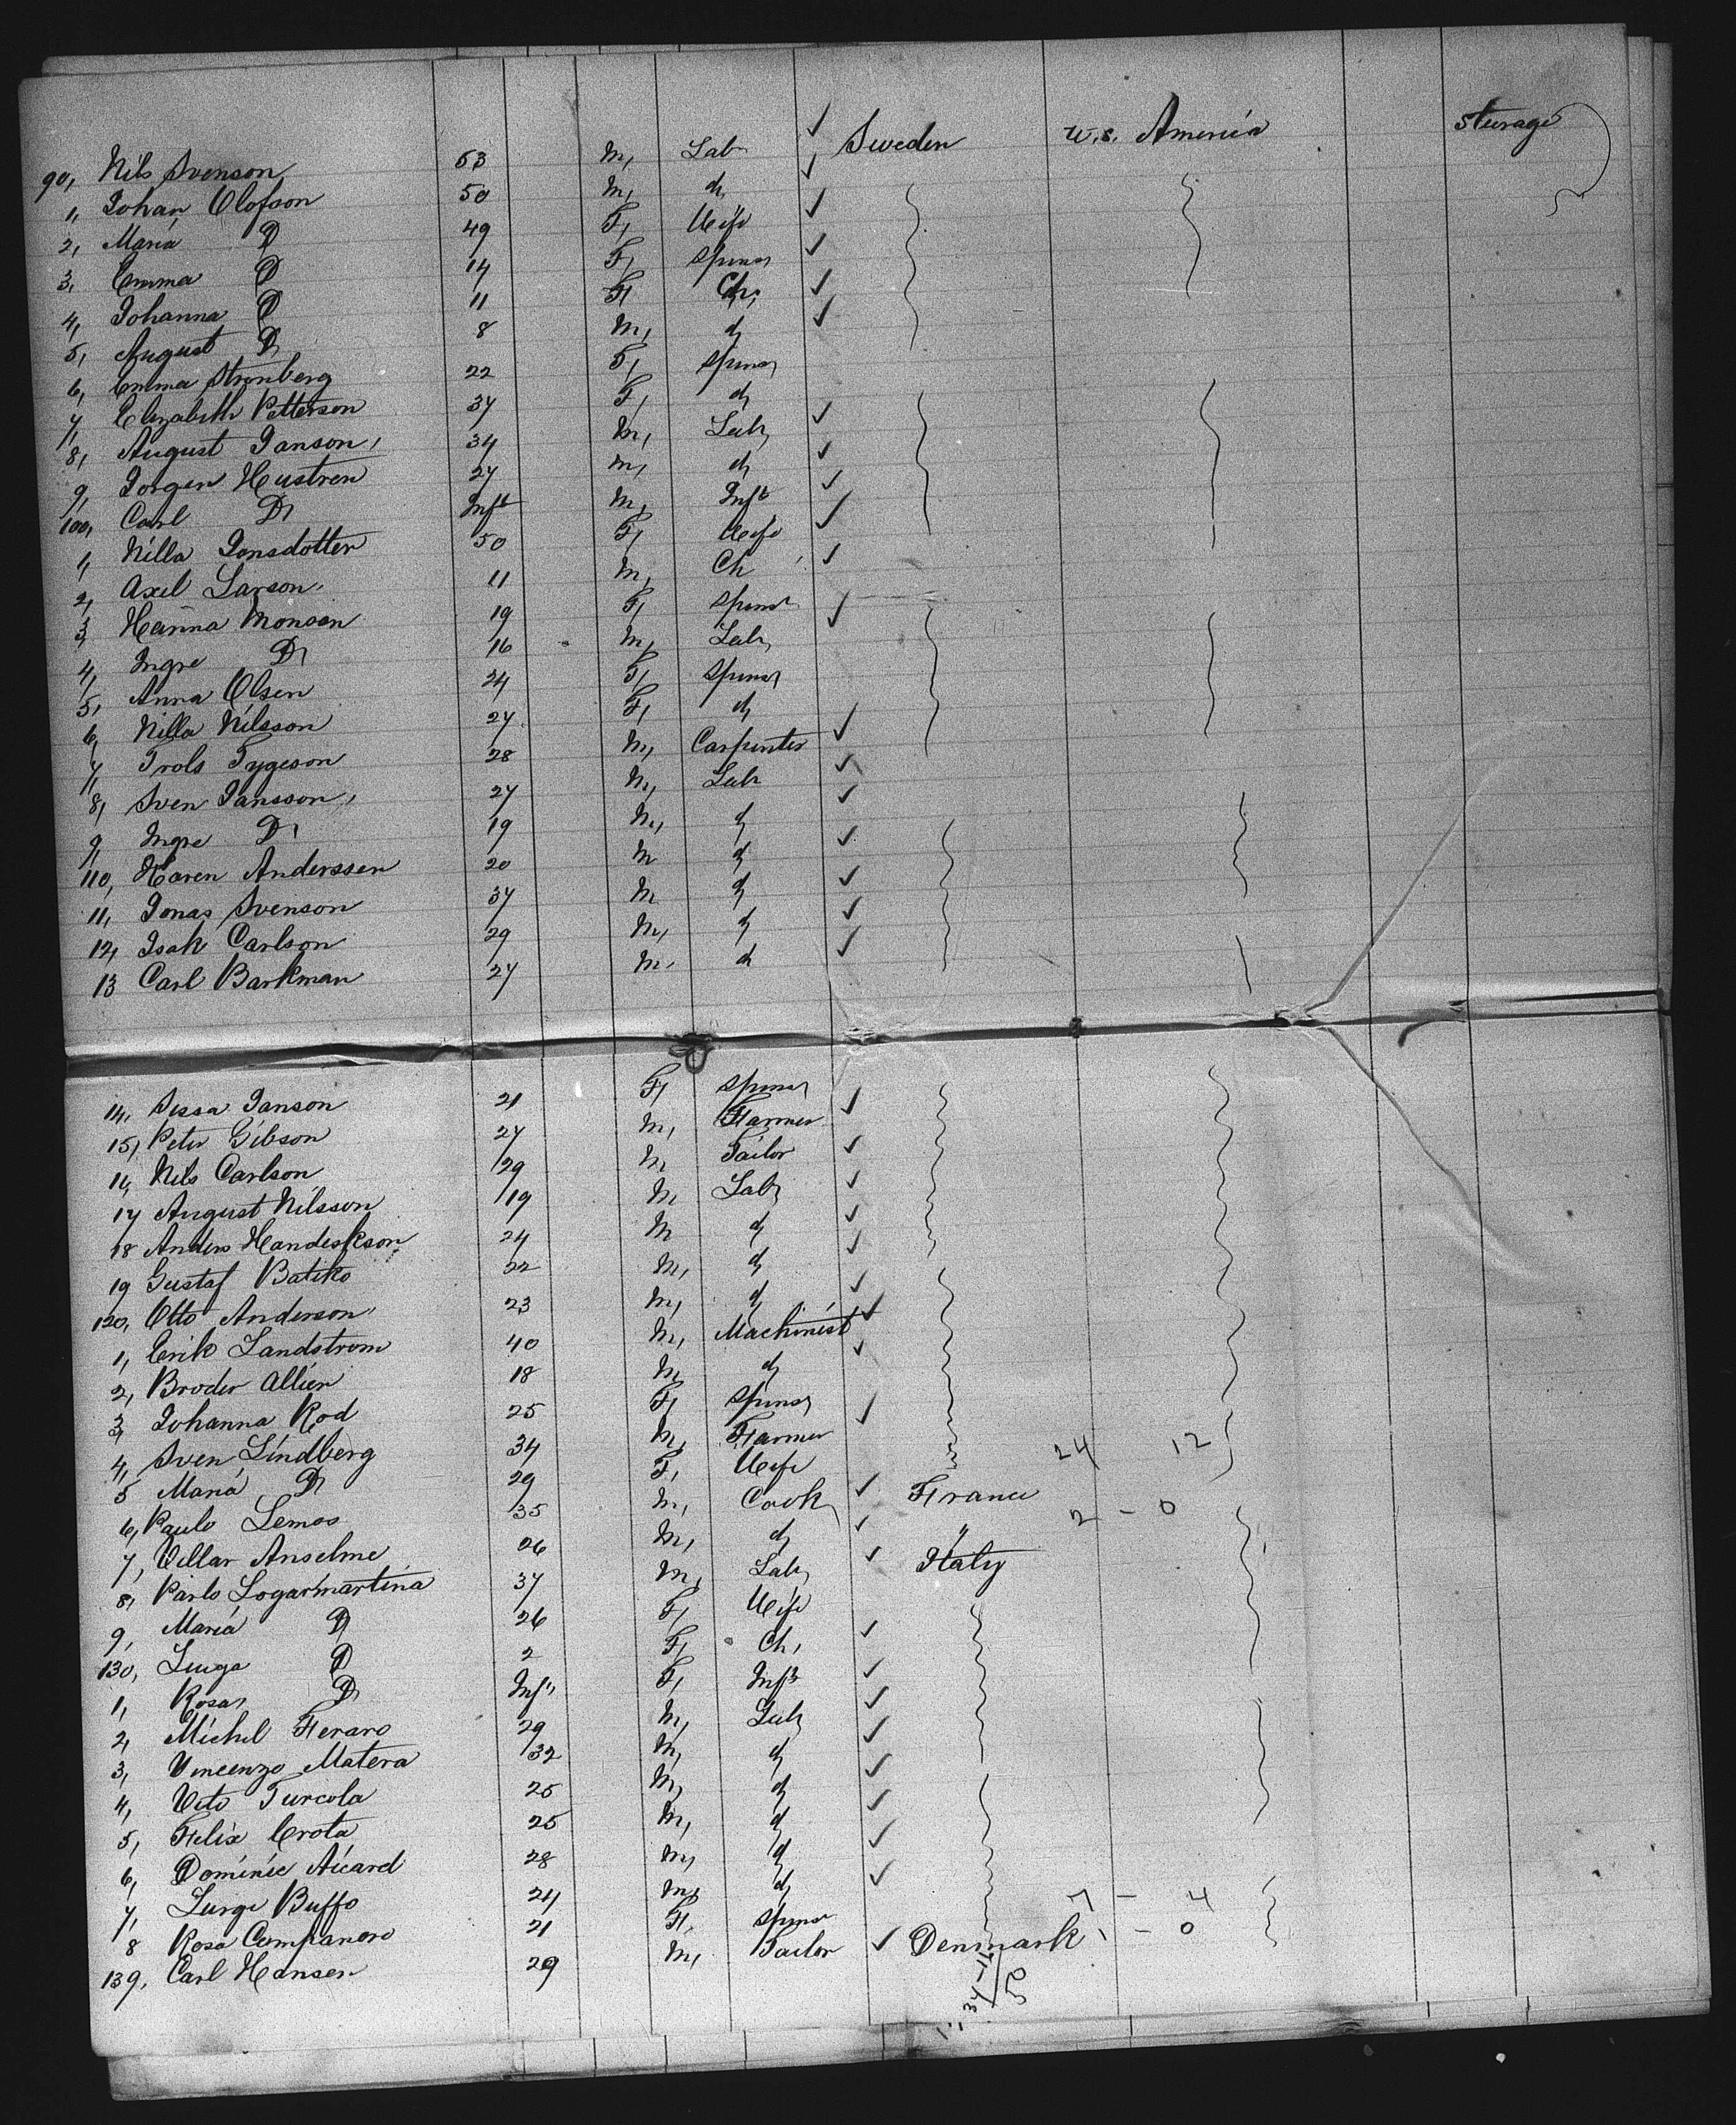 90, Nils Svenson 53 M, Lab ✓ Sweden U.S. America Sturage
1, Johan Olofson 50 M, do ✓
2, Maria Do 49 F, Wife ✓
3, Emma Do 14 F, Spinsr ✓
4, Johanna Do 11 F, Ch, ✓
5, August Do 8 M, do ✓
6, Emma Stromberg 22 F, Spinsr
7, Elizabeth Petterson 37 F, do
8, August Janson, 34 M, Labr ✓
9, Jorgen Hustren 27 M, do ✓
100, Carl Do Inft M, Inft ✓
1, Nilla Jonsdotter 50 F, Wife ✓
2, Axel Larson, 11 M, Ch ✓
3, Hanna Monson 19 F, Spinsr
4, Ingre Do 16 M, Labr ✓
5, Anna Olsen 24 F, Spinsr
6, Nilla Nilsson 27 F, do
7, Trols Tygeson 28 M, Carpenter ✓
8, Sven Jansson, 27 M, Labr ✓
9, Ingre Do 19 M, do ✓
110, Karen Anderssen 20 M do ✓
11, Jonas Svenson 37 M do ✓
12, Isak Carlson 29 M, do ✓
13 Carl Barkman 27 M, do ✓
14, Sissa Janson 21 F, Spinsr
15, Peter Gibson 27 M, Farmer ✓
16, Nils Carlson 29 M Tailor ✓
17 August Nilsson 19 M Labr ✓
18 Anders Handeskson 24 M do ✓
19 Gustaf Batiko 22 M, do ✓
120, Otto Anderson 23 M, do ✓
1, Erik Landstrom 40 M, Machinist ✓
2, Broder Allien 18 M, do ✓
3, Johanna Rod 25 F, Spinsr
4, Sven Lindberg 34 M, Farmer ✓
5 Maria Do 29 F, Wife 24 12
6, Paulo Lemos 35 M, Cook ✓ France
7, Villar Anselme 26 M, do ✓ " 2 - 0
8, Parlo Logarmartina 37 M, Labr ✓ Italy
9, Maria Do 26 F, Wife
130, Luiga Do 2 F, Ch, ✓
1, Rosa, Do Inft F, Inft ✓
2, Michel Feraro 29 M, Labr ✓
3, Vincenzo Matera 32 M, do ✓
4, Veto Turcola 25 M, do ✓
5, Felix Crota 25 M, do ✓
6, Dominic Aicard 28 M, do ✓
7, Lurge Buffo 24 M, do ✓
8 Rosa Companoro 21 F, Spinsr 7 - 4
139, Carl Hansen 29 M, Tailor ✓ Denmark 1 - 0